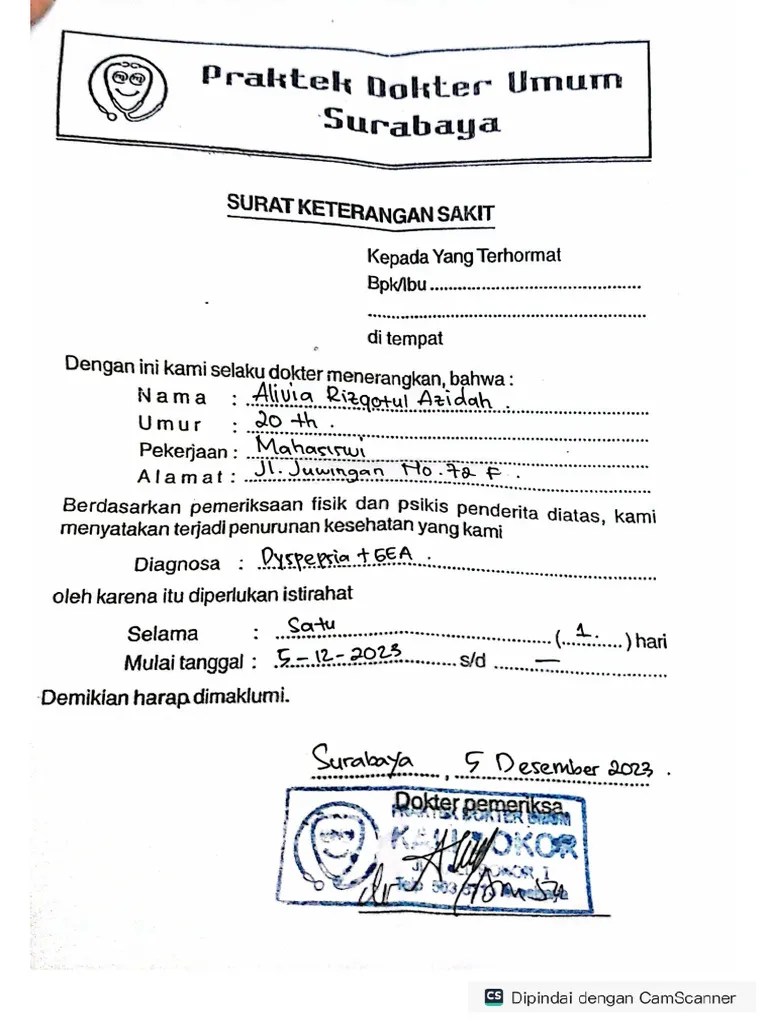 Praktek Dokter Umum
Surabaya
SURAT KETERANGAN SAKIT
Kepada Yang Terhormat
Bpk/Ibu
di tempat
Dengan ini kami selaku dokter menerangkan, bahwa :
Nama : Alivia Rizqotul Azidah .
Umur : 20 th .
Pekerjaan : Mahasiswi
Alamat : Jl. Juwingan No. 72 F .
Berdasarkan pemeriksaan fisik dan psikis penderita diatas, kami
menyatakan terjadi penurunan kesehatan yang kami
Diagnosa : Dyspepsia + GEA .
oleh karena itu diperlukan istirahat
Selama : Satu ( 1. ) hari
Mulai tanggal : 5-12-2023 s/d —
Demikian harap dimaklumi.
Surabaya , 5 Desember 2023 .
Dokter pemeriksa
PRAKTEK DOKTER UMUM
dr
CS Dipindai dengan CamScanner